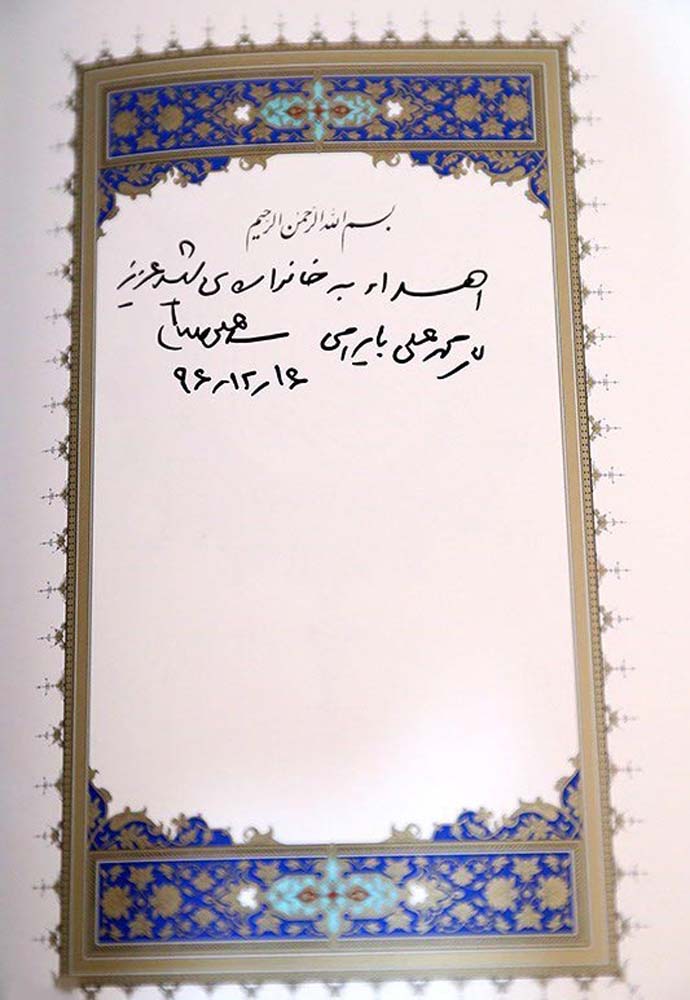 بسم الله الرحمن الرحیم
اهداء به خانواده‌ی شهید عزیز
محمدعلی بایرامی
۹۶٫۱۲٫۱۶